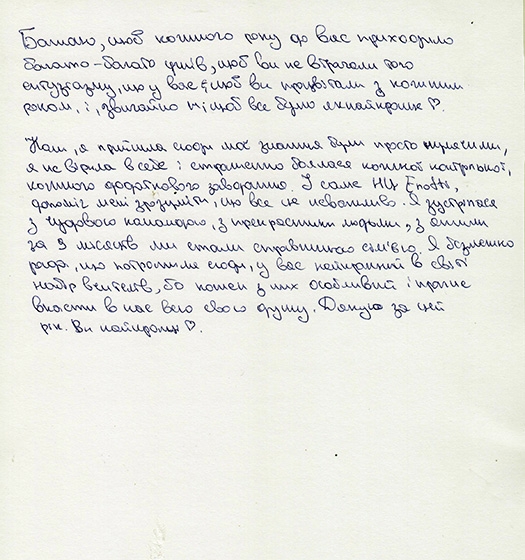 Бажаю, щоб кожного року до вас приходило
багато-багато учнів, щоб ви не втрачали того
ентузіазму, що у вас є, щоб ви процвітали з кожним
роком, і, звичайно ж, щоб все було якнайкраще ♡.
Коли я прийшла сюди мої знання були просто нулячими,
я не вірила в себе і страшенно боялася кожної контрольної,
кожного додаткового завдання. І саме НЦ
допоміг мені зрозуміти, що все це неважливо. Я зустрілася
з чудовою командою, з прекрасними людьми, з якими
за 9 місяців ми стали справжньою сім'єю. Я безмежно
рада, що потрапила сюди, у вас найкращий в світі
набір вчителів, бо кожен з них особливий і прагне
вкласти в нас всю свою душу. Дякую за цей
рік. Ви найкращі ♡.